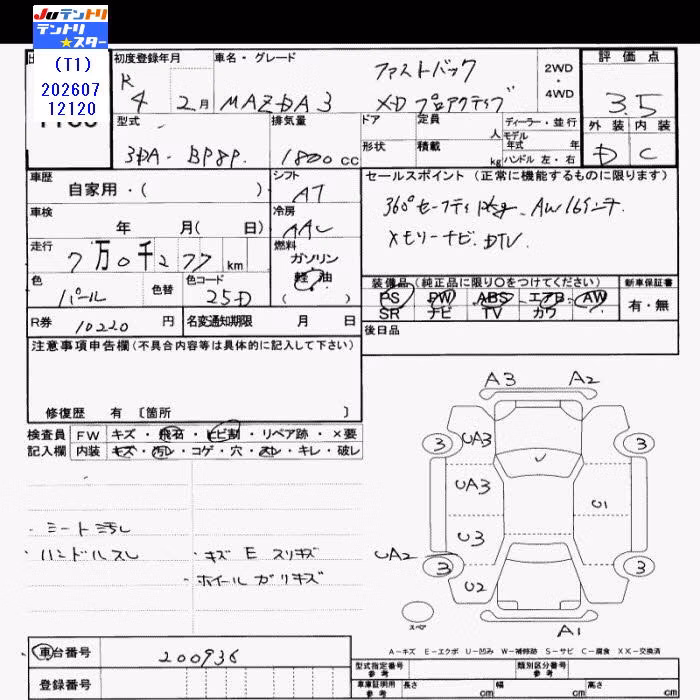 JUテントリ
テントリ
★スター
(T1)
202607
12120
初度登録年月
車名・グレード
ファストバック
2WD
・
4WD
評価点
R
4 2月
MAZDA3
XD プロアクティブ
3.5
型式
排気量
ドア
定員
人
ディーラー・並行
モデル
年式 年
外装
内装
3DA-BP8P
1800cc
形状
積載
kg
ハンドル 左・右
D
C
車歴
自家用・( )
シフト
AT
セールスポイント (正常に機能するものに限ります)
360°セーフティpkg. AW16インチ.
メモリーナビ. DTV.
車検
年 月( 日)
冷房
AAC
走行
7万0千277km
燃料
ガソリン
軽油
( )
色
パール
色替
色コード
25D
装備品(純正品に限り○をつけてください)
新車保証書
PS PW ABS エアB AW
SR ナビ TV カワ
有・無
R券
10220円
名変通知期限 月 日
後日品
注意事項申告欄(不具合内容等は具体的に記入して下さい)
修復歴 有 〔箇所 〕
検査員
FW
キズ・飛石・ヒビ割・リペア跡・×要
記入欄
内装
キズ・汚レ・コゲ・穴・スレ・キレ・破レ
・シート汚し
・ハンドルスレ
・キズ E スリキズ
・ホイールガリキズ
A3
A2
3
UA3
3
UA3
U1
U3
UA2
3
U2
3
スペア
A1
A-キズ E-エクボ U-凹み W-補修跡 S-サビ C-腐食 XX-交換済
車台番号
200936
登録番号
型式指定番号
参考
類別区分番号
参考
車庫証明用
参考
長さ cm
幅 cm
高さ cm